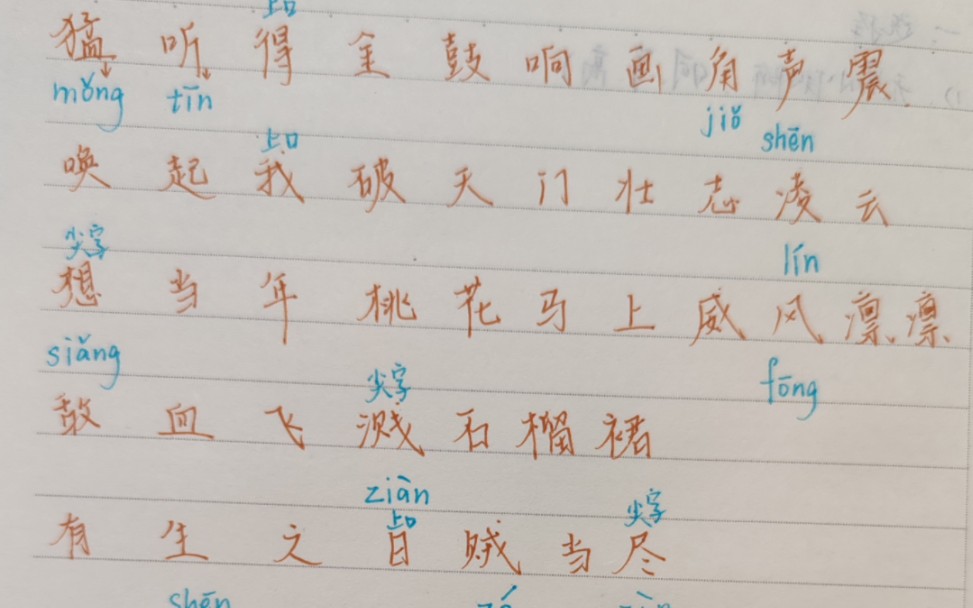 上口
猛听得金鼓响画角声震
mǒng tīn jiǒ shēn
上口
唤起我破天门壮志凌云
lín
尖字
想当年桃花马上威风凛凛
siǎng fōng
尖字
敌血飞溅石榴裙
ziàn
上口 尖字
有生之日贼当尽
shēn